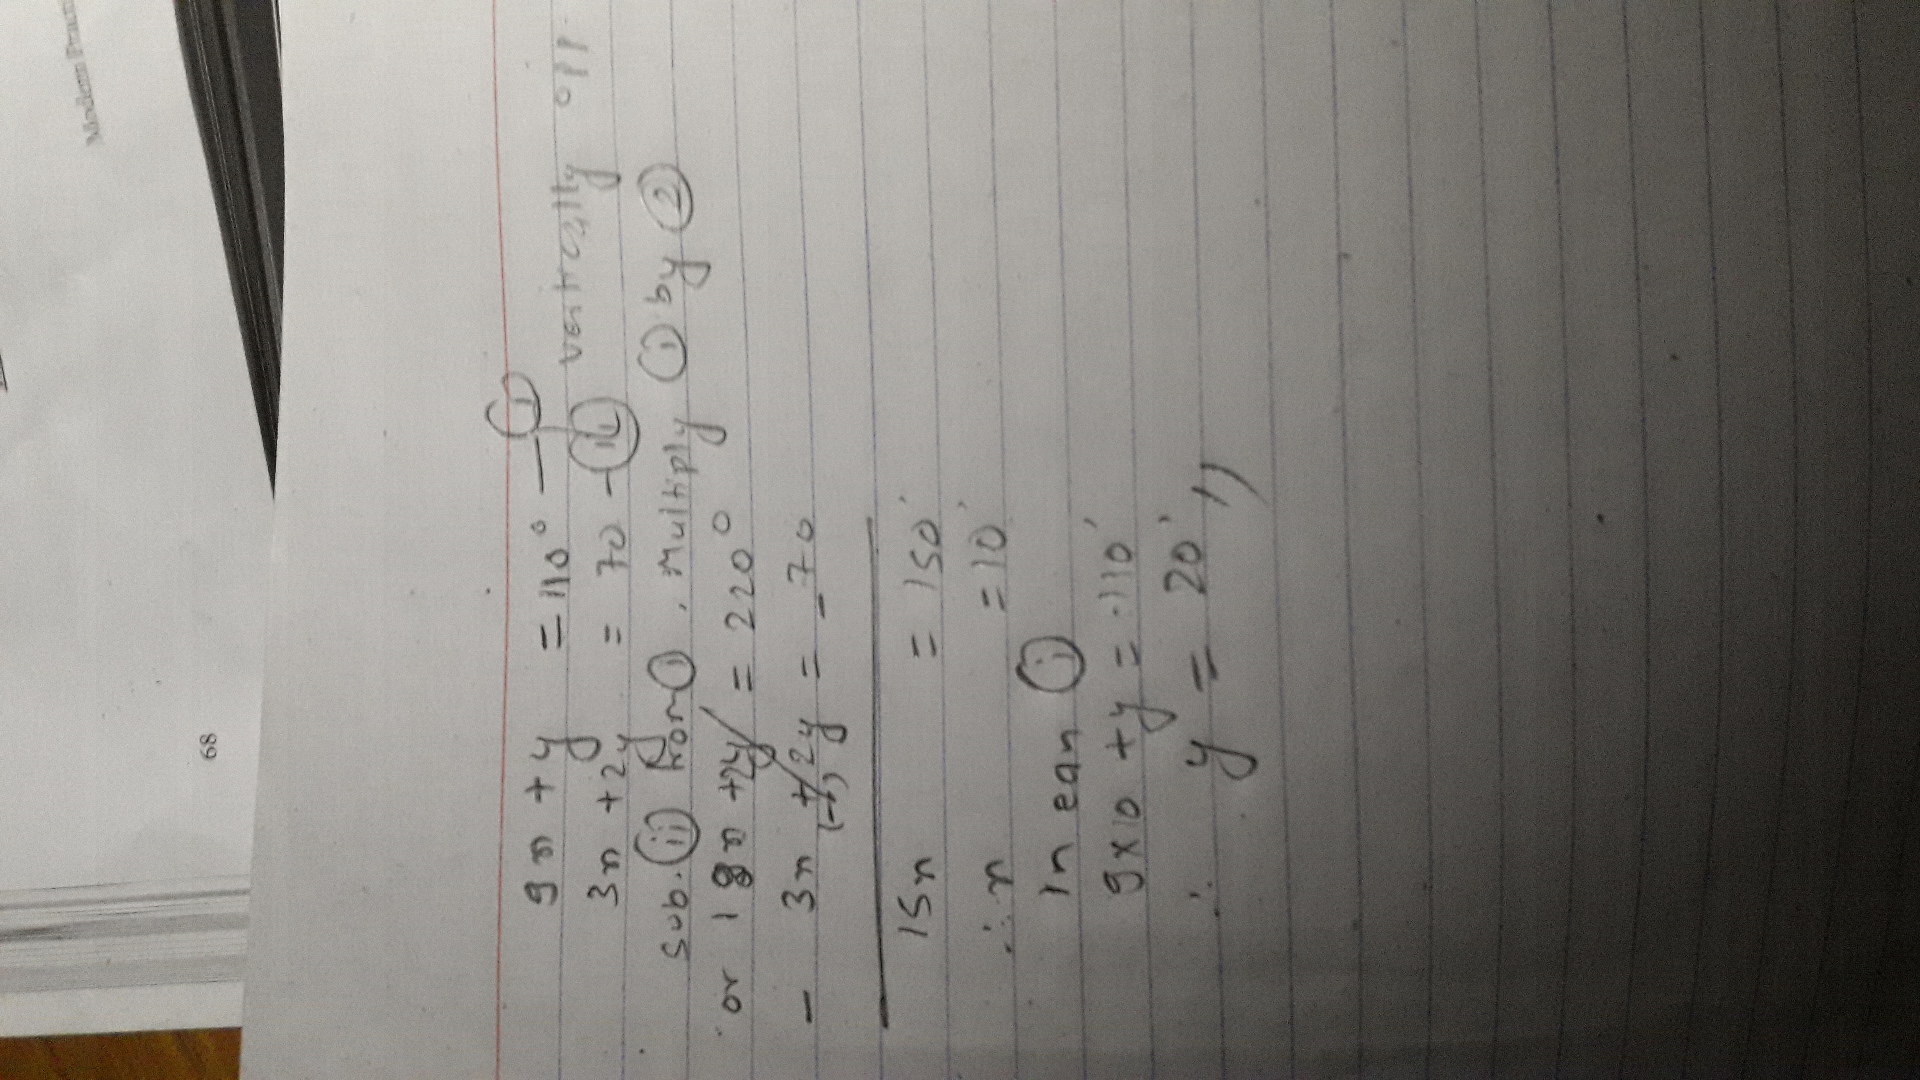 9x + y = 110° — (i)
3x + 2y = 70 - (ii) vertically opp.
sub. (ii) from (i), Multiply (i) by (2)
or 18x + 2y = 220°
- 3x + 2y = - 70
(-)
15x = 150°
∴ x = 10°
In eqn (i)
9×10 + y = 110°
∴ y = 20° //
68